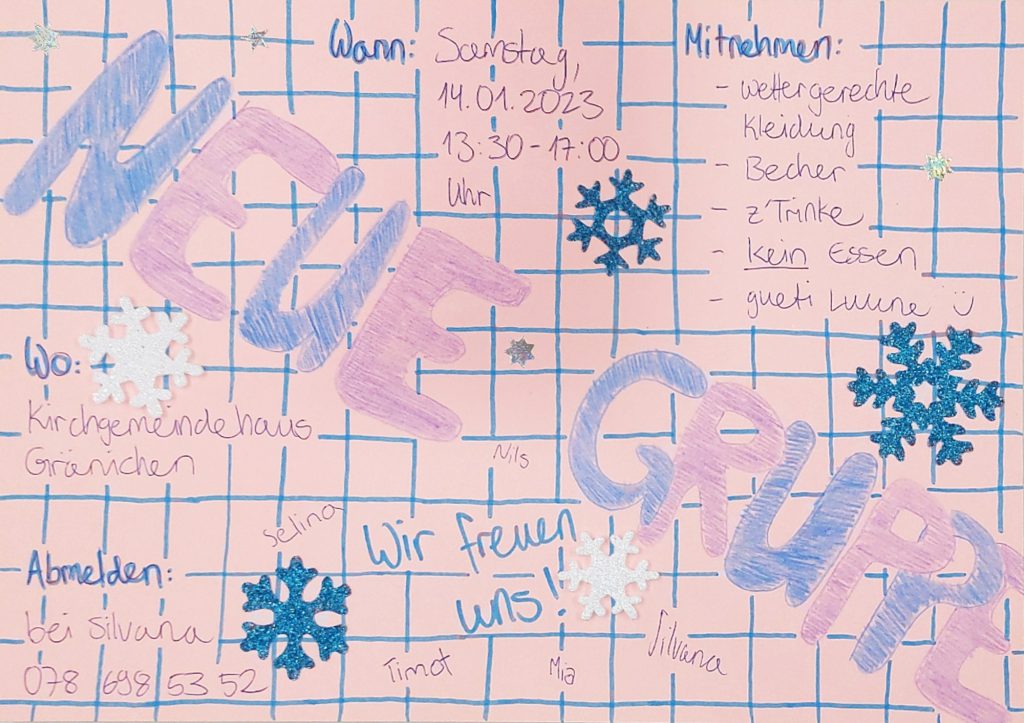 NEUE
GRUPPE
Wann: Samstag,
14.01.2023
13:30-17:00
Uhr
Mitnehmen:
- wettergerechte
Kleidung
- Becher
- z'Trinke
- kein Essen
- gueti Luune
Wo:
Kirchgemeindehaus
Gränichen
Abmelden:
bei Silvana
078 698 53 52
Wir freuen
uns!
Nils
Selina
Timot
Mia
Silvana